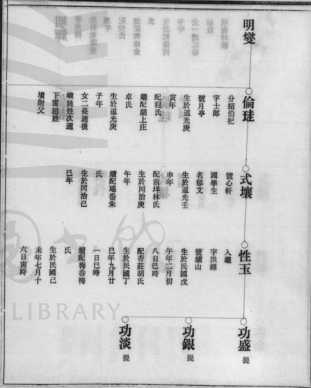 明燮
倫珪
分紹伯祀
字士郎
號月亭
生於道光庚
寅年
配程氏
繼配湖上莊
卓氏
生於道光庚
子年
女二長適後
姚姓次適
下富趙姓
墳附父
式壤
號心軒
國學生
名郁文
生於道光壬
申年
配前坪林氏
生於同治庚
午年
續配瑤岙朱
氏
生於同治己
巳年
性玉
入繼
字洪錚
號繡山
生於民國戊
午年二月初
八日巳時
配杏莊胡氏
生於民國丁
巳年九月廿
一日巳時
續配梅岙梅
氏
生於民國己
未年七月十
六日寅時
功盛 提
功銀 提
功淡 提
LIBRARY